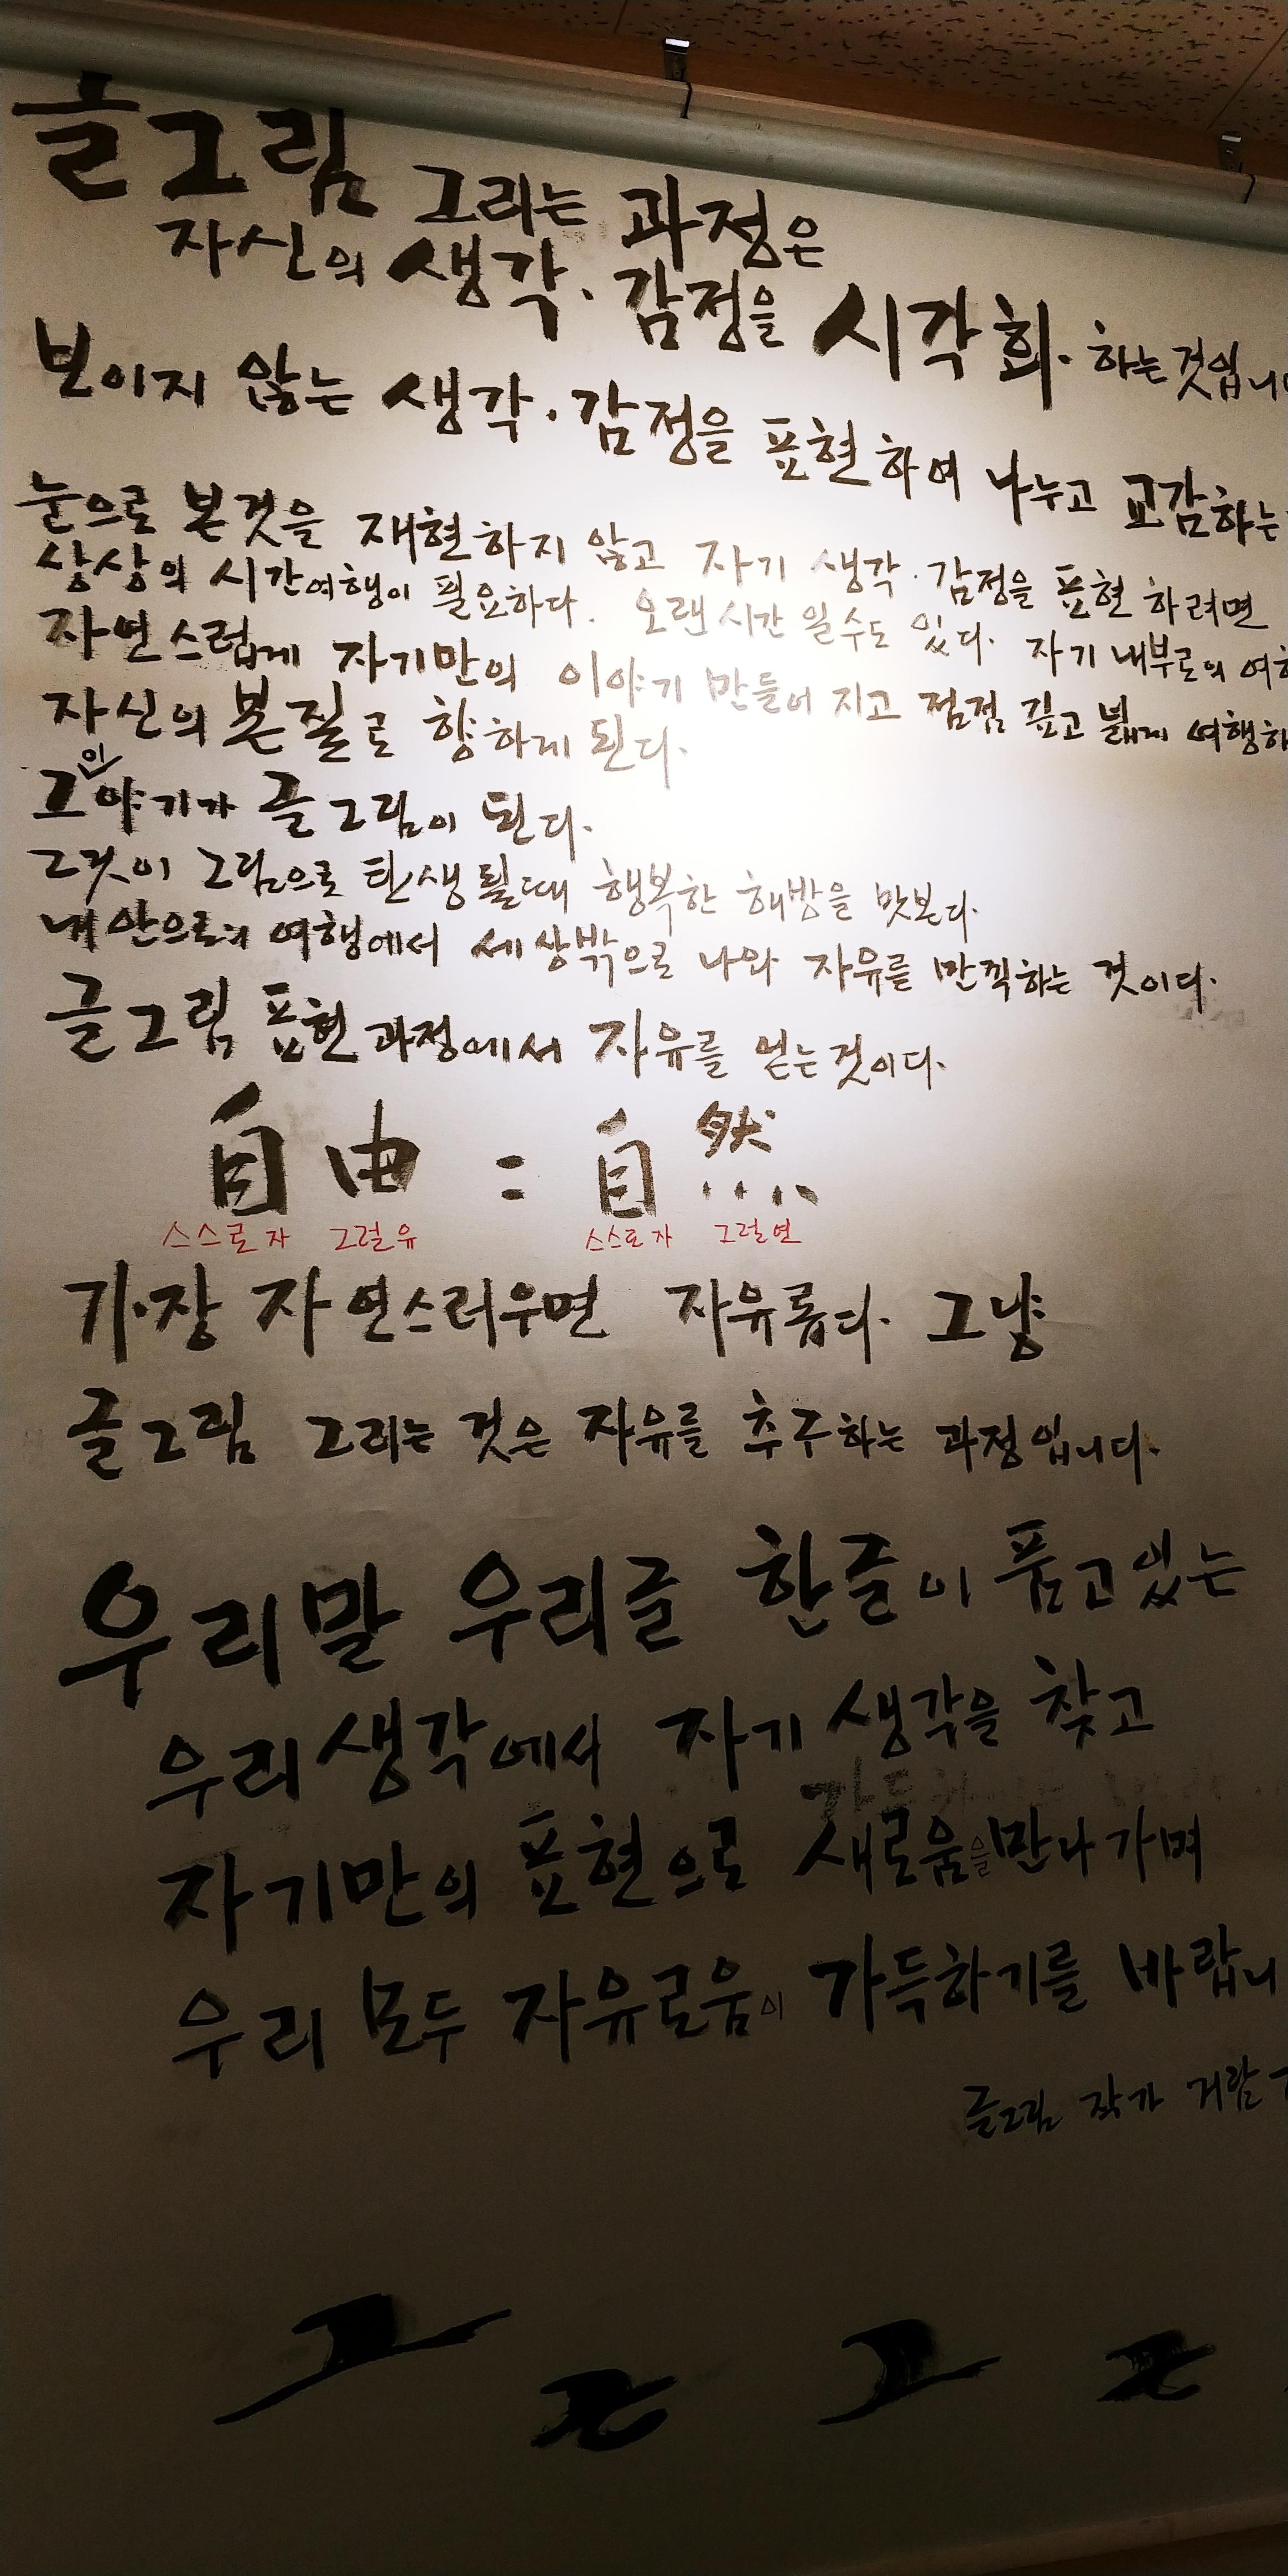 글그림 그리는 과정은
자신의 생각·감정을 시각화·하는것입니
보이지 않는 생각·감정을 표현하여 나누고 교감하는
눈으로 본것을 재현하지 않고 자기 생각·감정을 표현하려면
상상의 시간여행이 필요하다. 오랜시간 일수도 있다. 자기내부로의 여
자연스럽게 자기만의 이야기 만들어 지고 점점 깊고 넓게 여행하
자신의 본질로 향하게 된다.
그이야기가 글그림이 된다.
그것이 그림으로 탄생될때 행복한 해방을 맛본다.
내안으로의 여행에서 세상밖으로 나와 자유를 만끽하는 것이다.
글그림 표현과정에서 자유를 얻는것이다.
自由 = 自然
스스로자 그럴유 스스로자 그럴연
가장 자연스러우면 자유롭다. 그냥
글그림 그리는 것은 자유를 추구하는 과정입니다.
우리말 우리글 한글이 품고있는
우리생각에서 자기 생각을 찾고
자기만의 표현으로 새로움을만나가며
우리 모두 자유로움이 가득하기를 바랍니
글그림 작가 거람